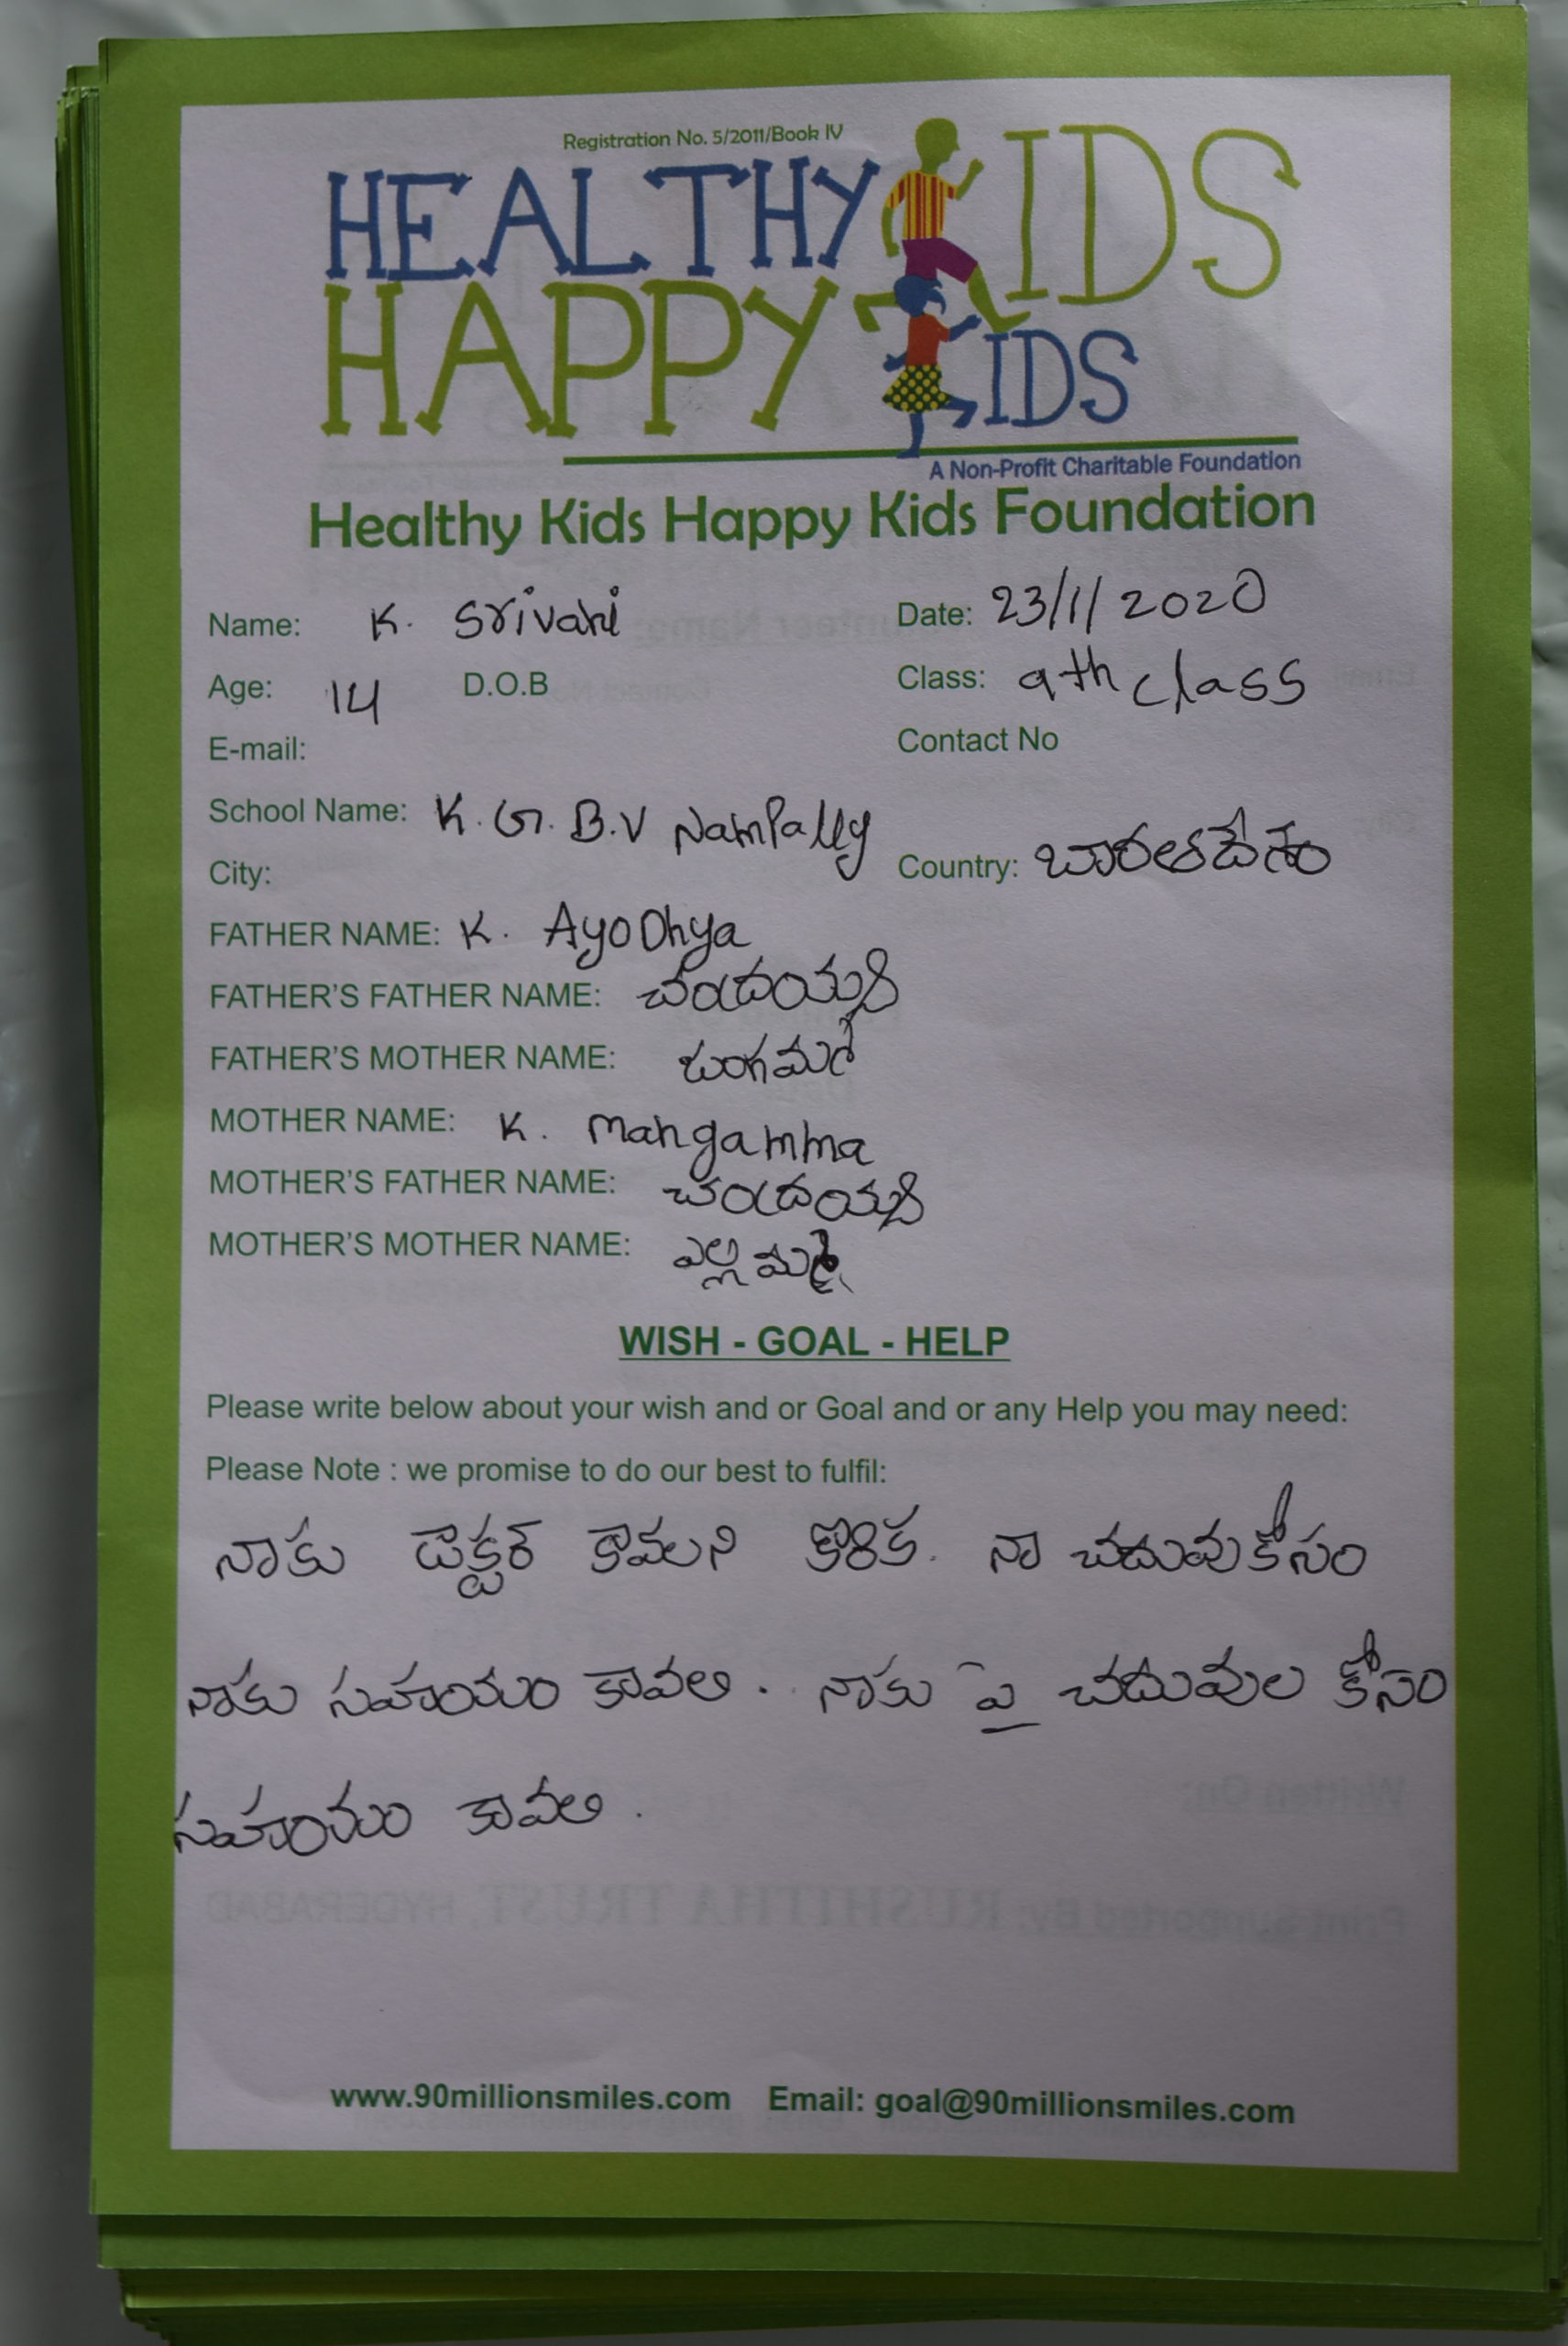 Registration No. 5/2011/Book IV
HEALTHY KIDS
HAPPY KIDS
A Non-Profit Charitable Foundation
Healthy Kids Happy Kids Foundation
Name: K. Srivani Date: 23/1/2020
Age: 14 D.O.B Class: 9th class
E-mail: Contact No
School Name: K.G.B.V Nampally
City: Country: బారతదేశం
FATHER NAME: K. AyoDhya
FATHER'S FATHER NAME: చంద్రయ్య
FATHER'S MOTHER NAME:
MOTHER NAME: K. Mangamma
MOTHER'S FATHER NAME: చంద్రయ్య
MOTHER'S MOTHER NAME: ఎల్లమ్మ
WISH - GOAL - HELP
Please write below about your wish and or Goal and or any Help you may need:
Please Note : we promise to do our best to fulfil:
నాకు డాక్టర్ కావలని కోరిక. నా చదువుకోసం
నాకు సహయం కావలి. నాకు పై చదువుల కోసం
సహయం కావలి.
www.90millionsmiles.com Email: goal@90millionsmiles.com